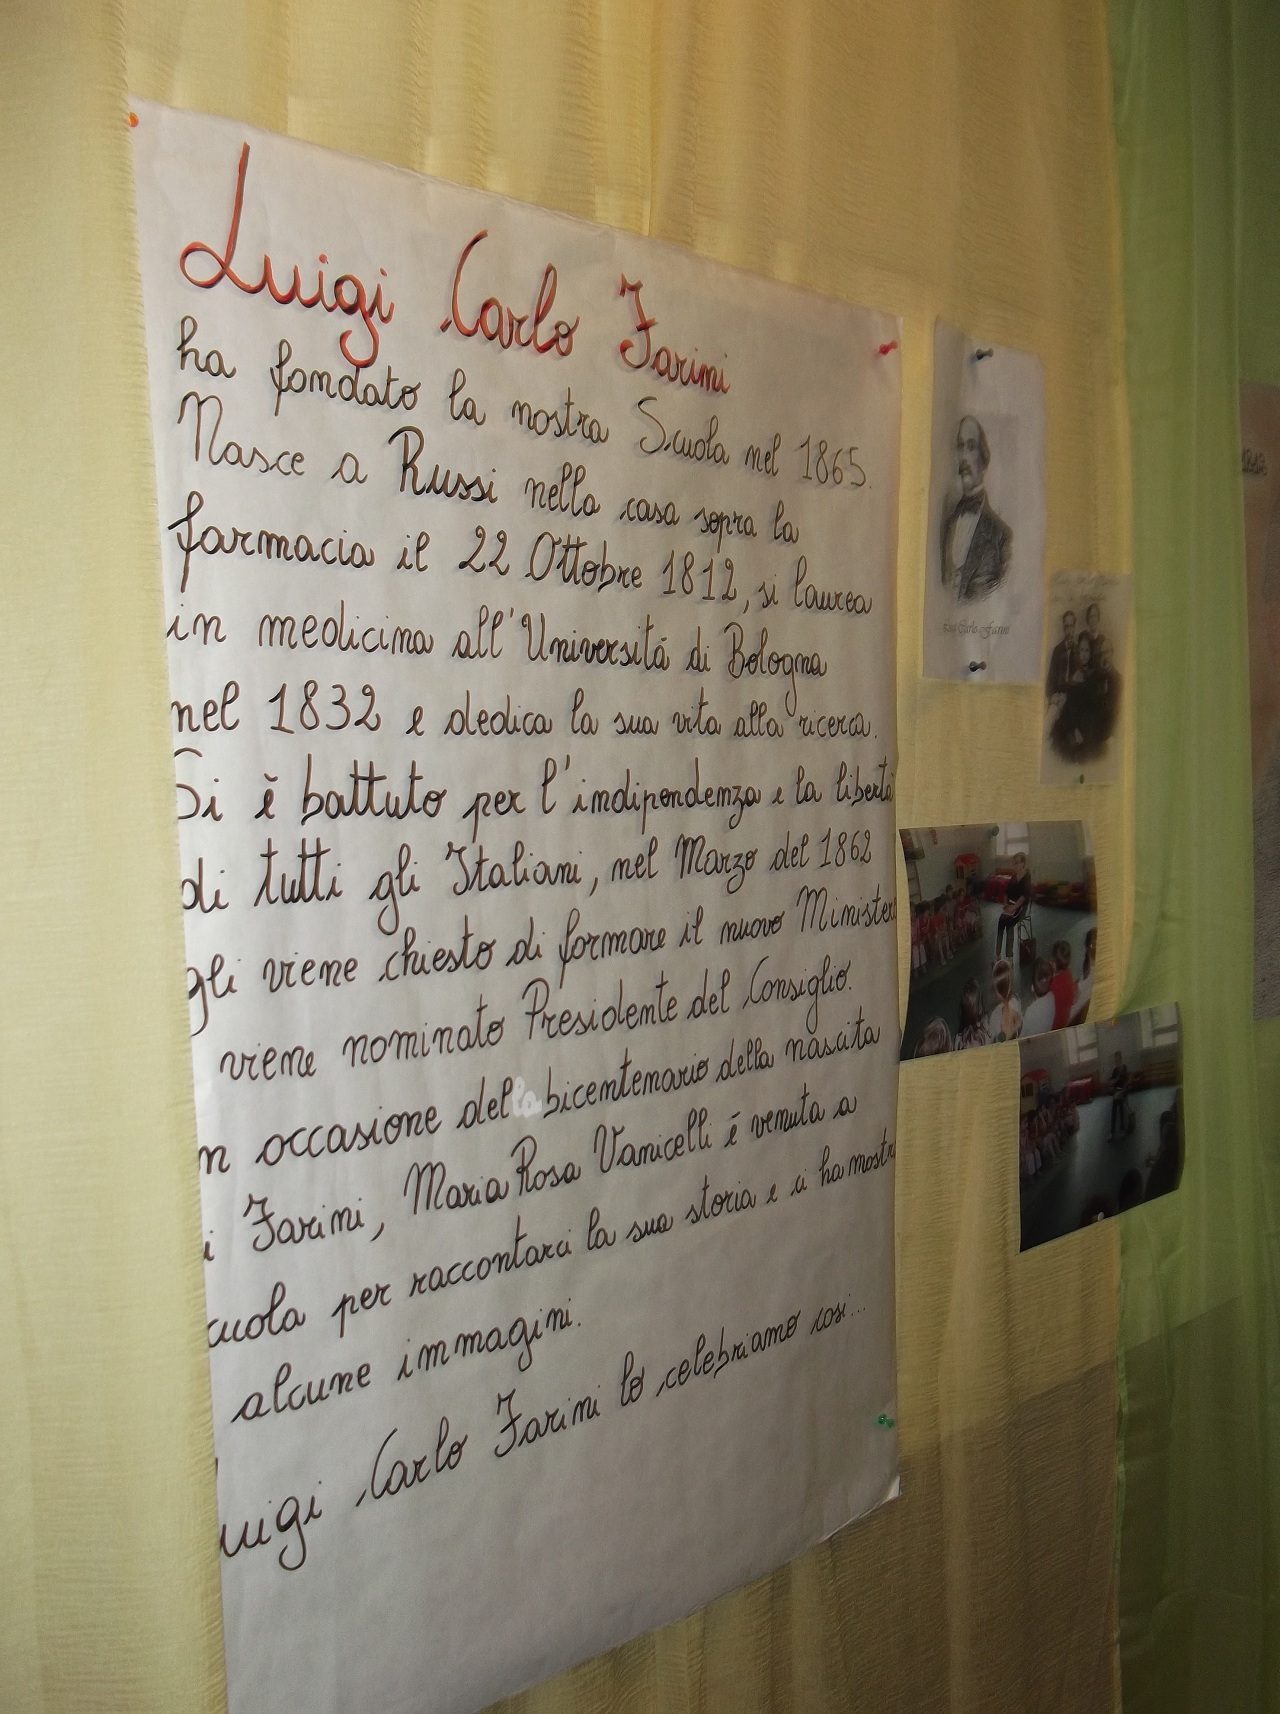 Luigi Carlo Farini
ha fondato la nostra Scuola nel 1865.
Nasce a Russi nella casa sopra la
farmacia il 22 Ottobre 1812, si laurea
in medicina all'Universitá di Bologna
nel 1832 e dedica la sua vita alla ricerca.
Si é battuto per l'indipendenza e la libertá
di tutti gli Italiani, nel Marzo del 1862
gli viene chiesto di formare il nuovo Minister
viene nominato Presidente del Consiglio.
n occasione del bicentenario della nascita
i Farini, Maria Rosa Vanicelli é venuta a
cuola per raccontarci la sua storia e ci ha mostr
alcune immagini.
uigi Carlo Farini lo celebriamo cosi...
Luigi Carlo Farini